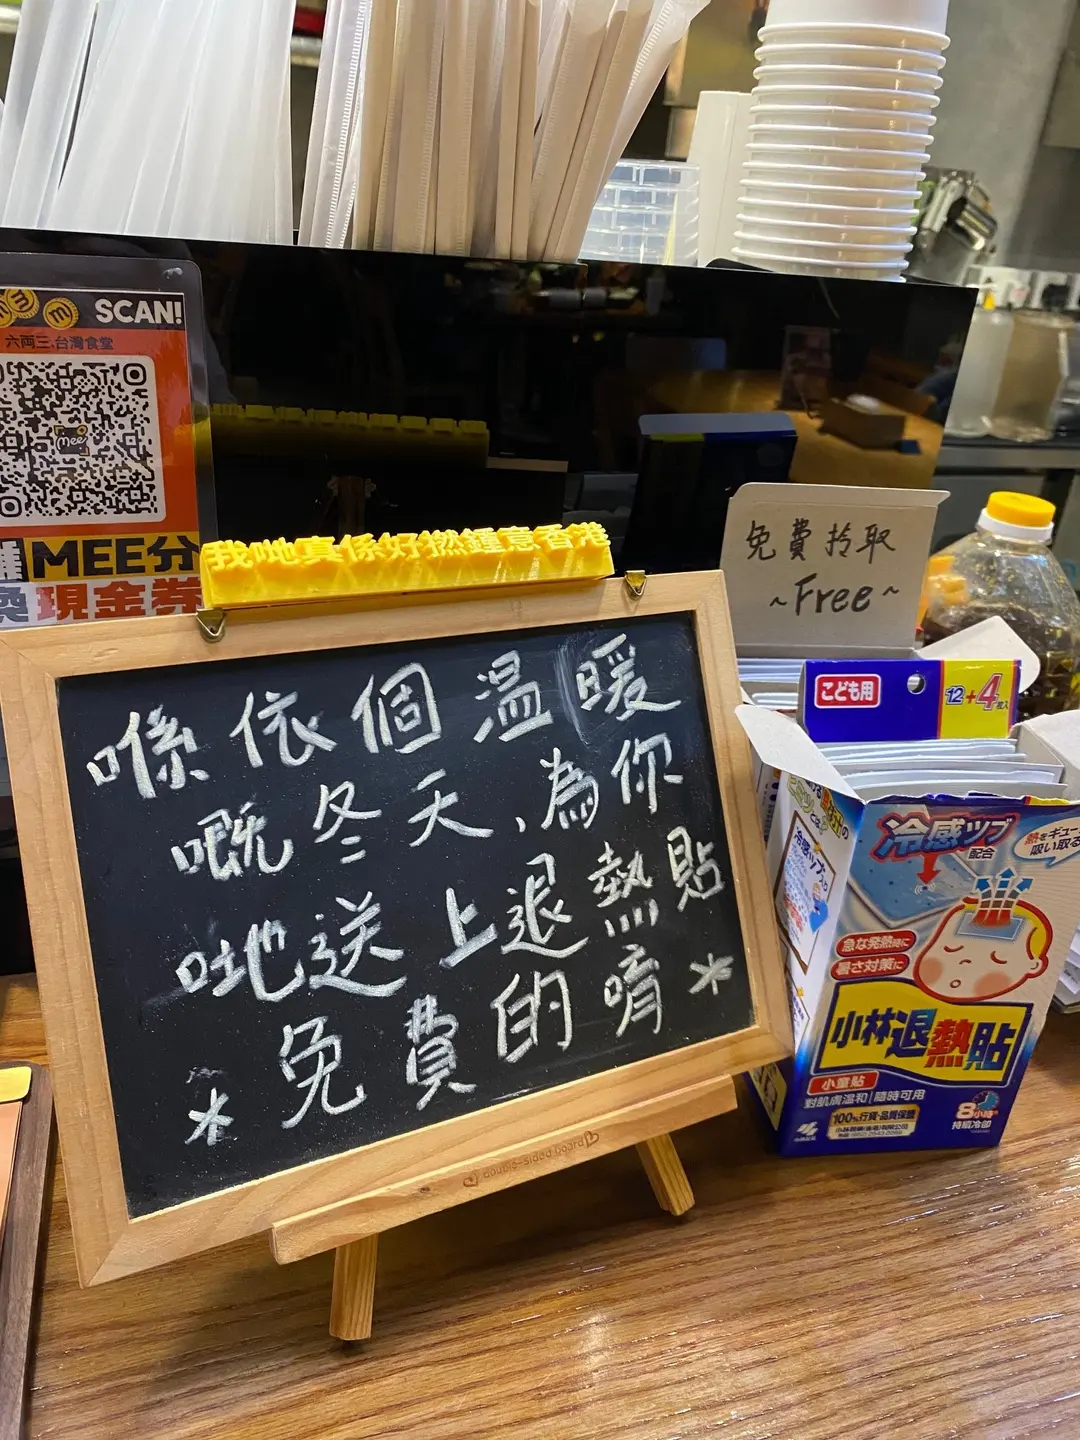 SCAN!
六両三.台灣食堂
mee
MEE分
換現金券
我哋真係好撚鍾意香港
喺依個溫暖
嘅冬天,為你
哋送上退熱貼
*免費的唷*
double-sided board
免費拎取
~Free~
こども用
12+4枚入
冷感ツブ
配合
熱をギュー
吸い取る
急な発熱時に
暑さ対策に
小林退熱貼
小童貼
對肌膚溫和|隨時可用
100%行貨·品質保證
8小時
持續冷卻